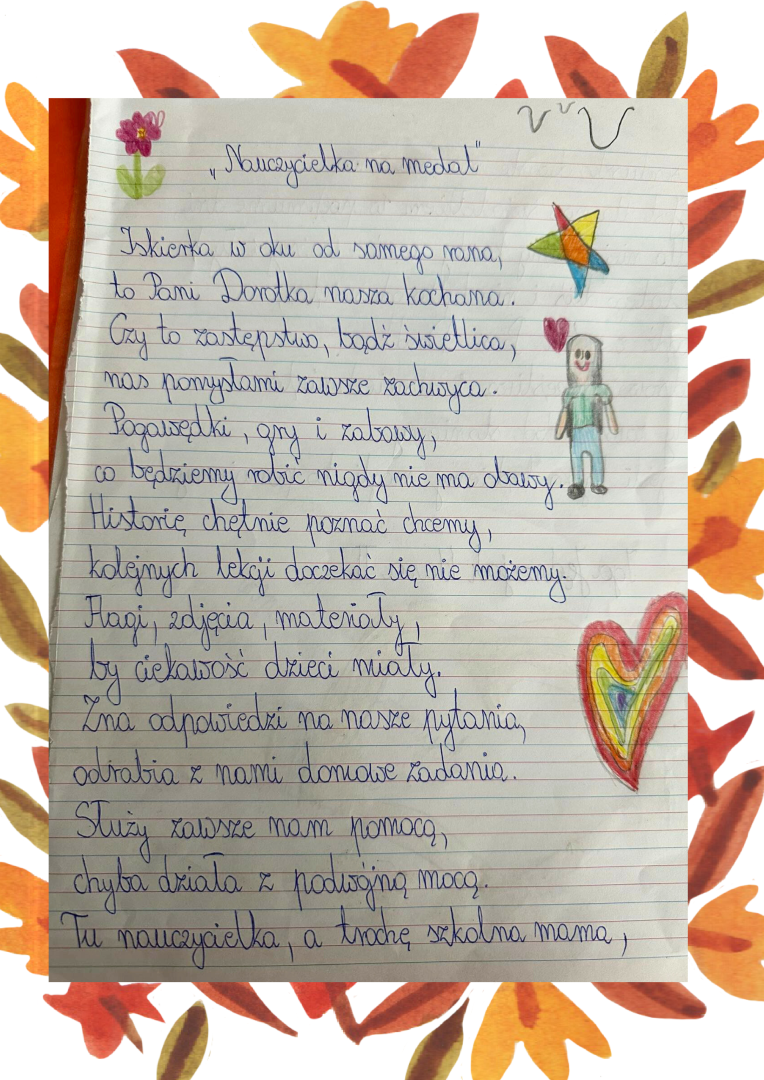 „Nauczycielka na medal"
Iskierka w oku od samego rana,
to Pani Dorotka nasza kochana.
Czy to zastępstwo, bądź świetlica,
nas pomysłami zawsze zachwyca.
Pogawędki, gry i zabawy,
co będziemy robić nigdy nie ma obawy.
Historię chętnie poznać chcemy,
kolejnych lekcji doczekać się nie możemy.
Flagi, zdjęcia, materiały,
by ciekawość dzieci miały.
Zna odpowiedzi na nasze pytania,
odrabia z nami domowe zadania.
Służy zawsze nam pomocą,
chyba działa z podwójną mocą.
Tu nauczycielka, a trochę szkolna mama,